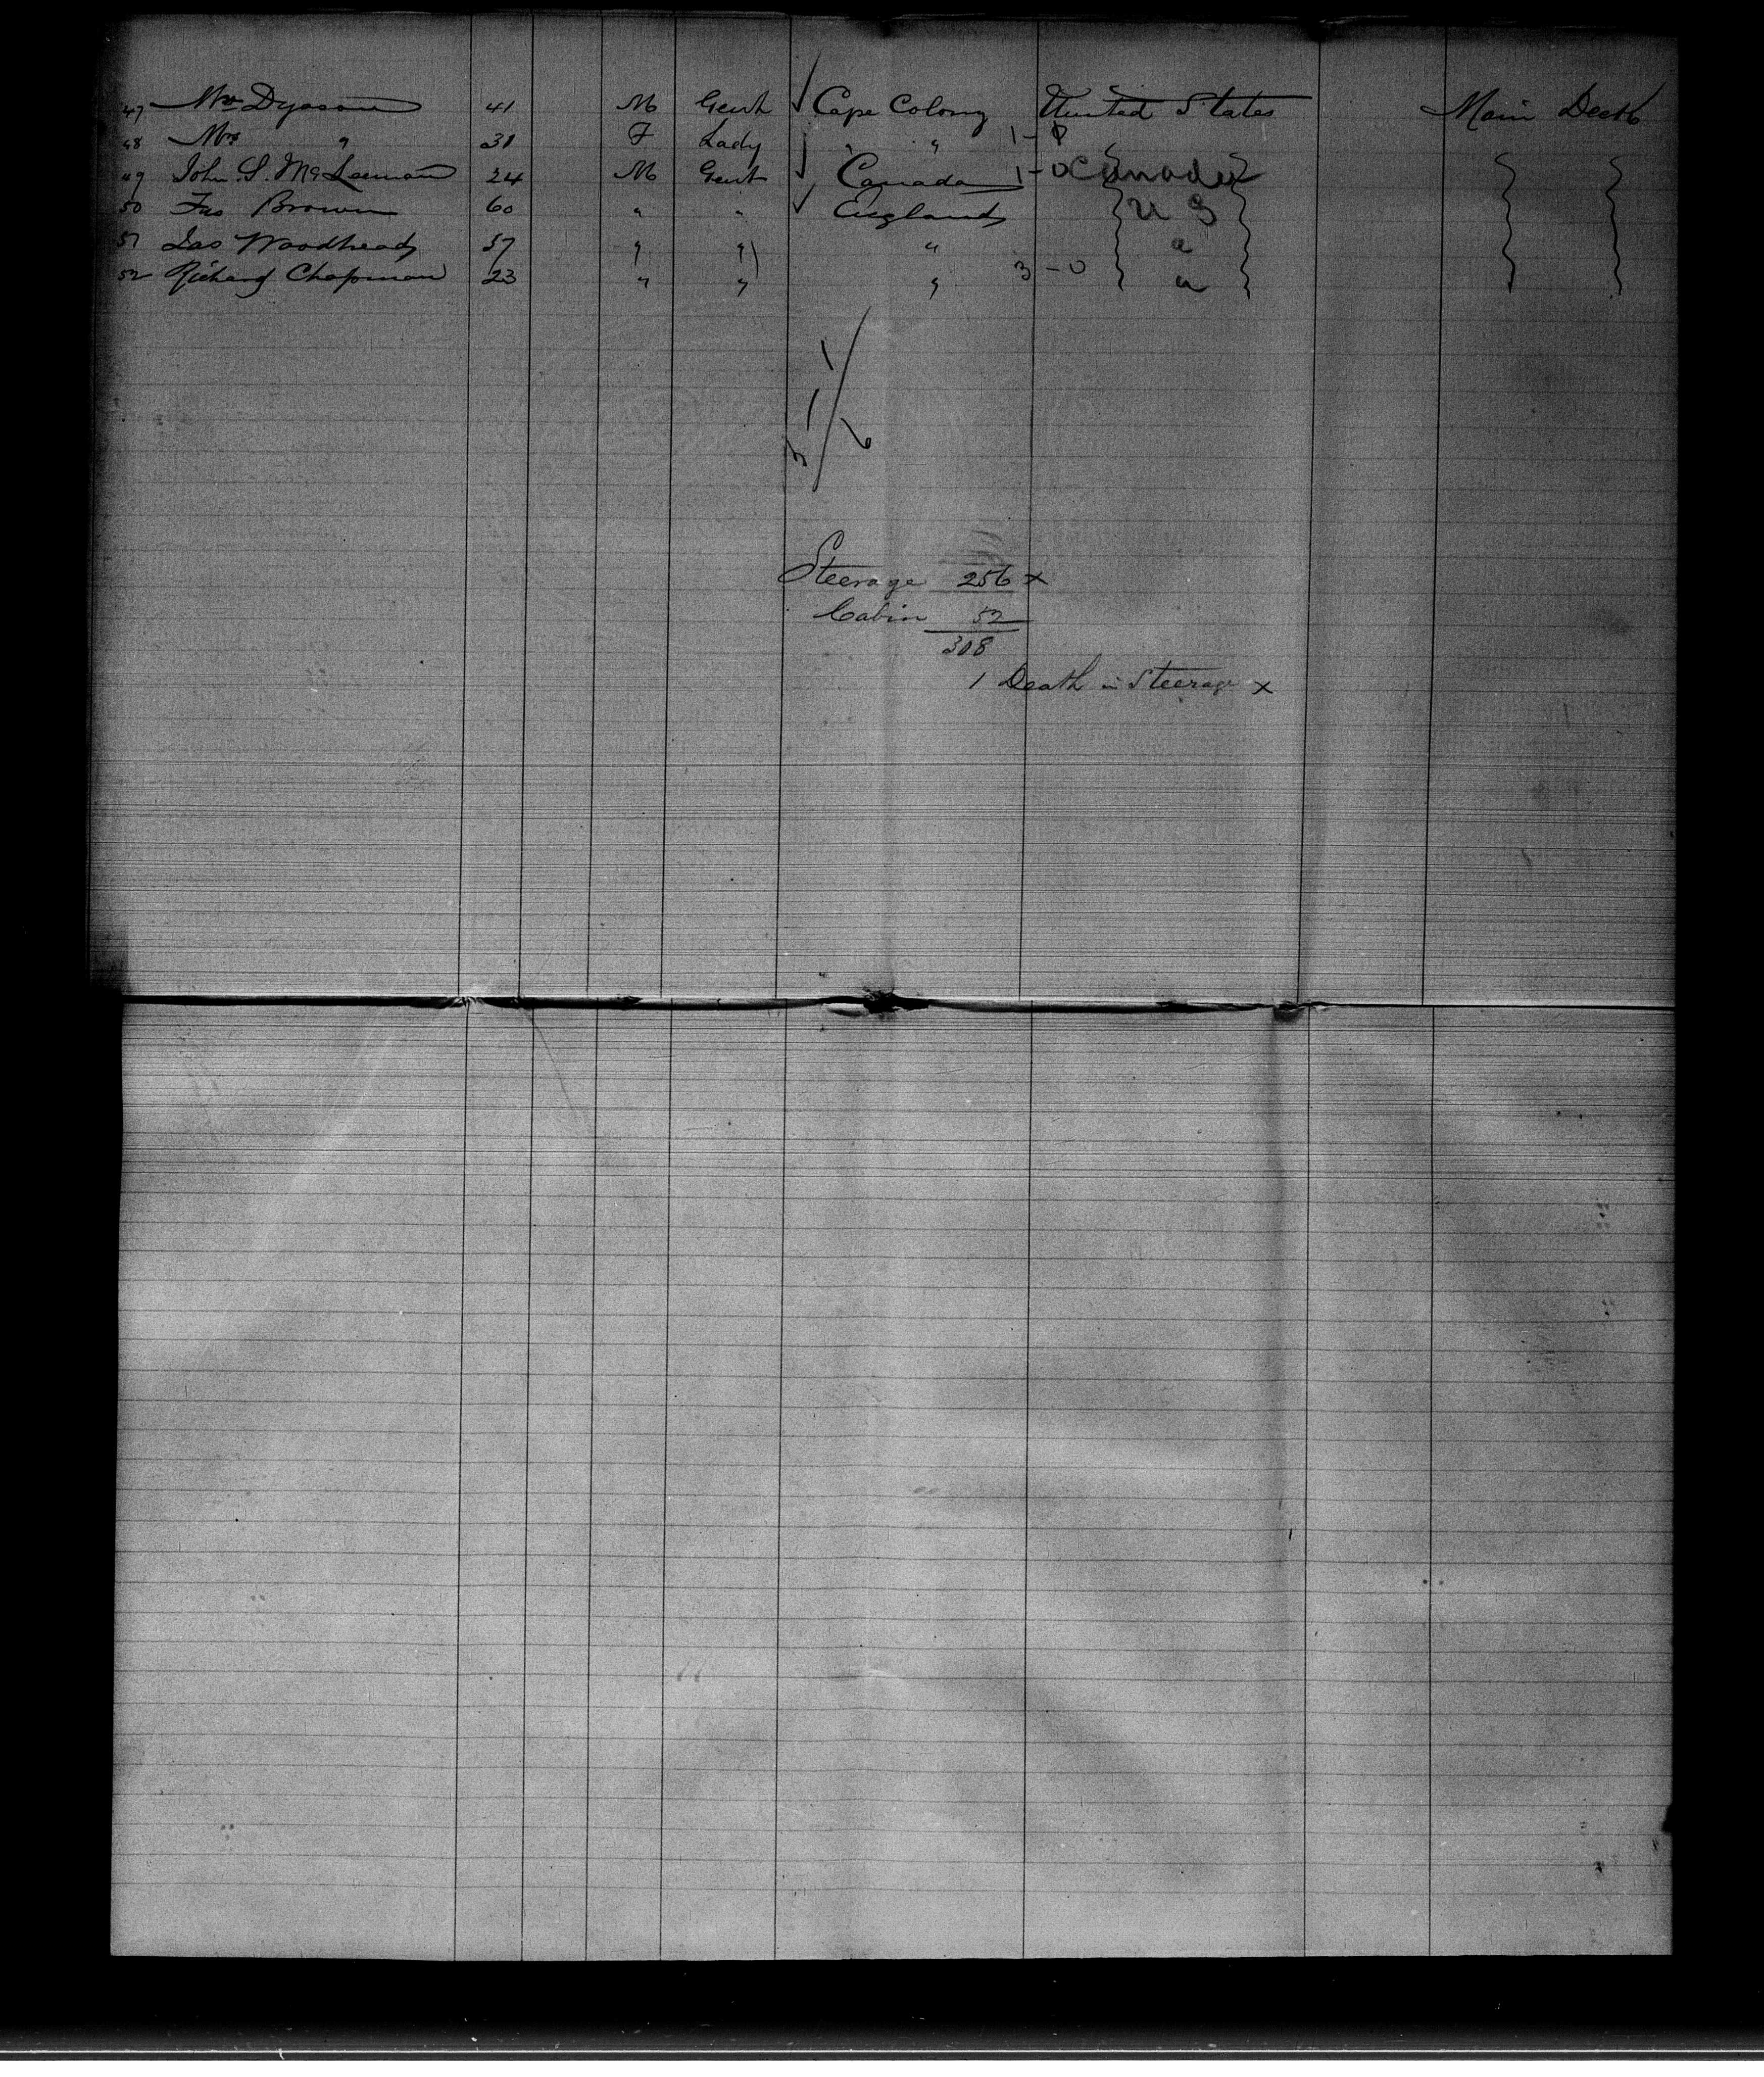 47 Mr Dyason 41 M Gent ✓ Cape Colony United States Main Deck
48 Mrs " 31 F Lady " " 1-0
49 John S. McLennan 24 M Gent Canada 1-0 Canada
50 Jas Brown 60 " " ✓ England U S
51 Jas Woodhead 57 " " "
52 Richard Chapman 23 " " " 3-0
3 1 1 / 6
Steerage 256 x
Cabin 52
308
1 Death in Steerage x